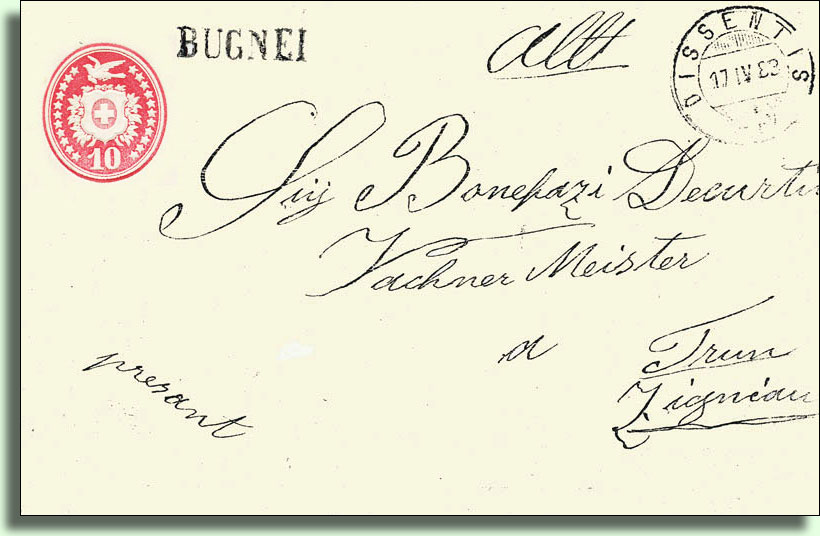 BUGNEI
allt
DISSENTIS
17 IV 83
10
Sig Bonefazi Decurtin
Vachner Meister
a Trun
Zignéau
presant